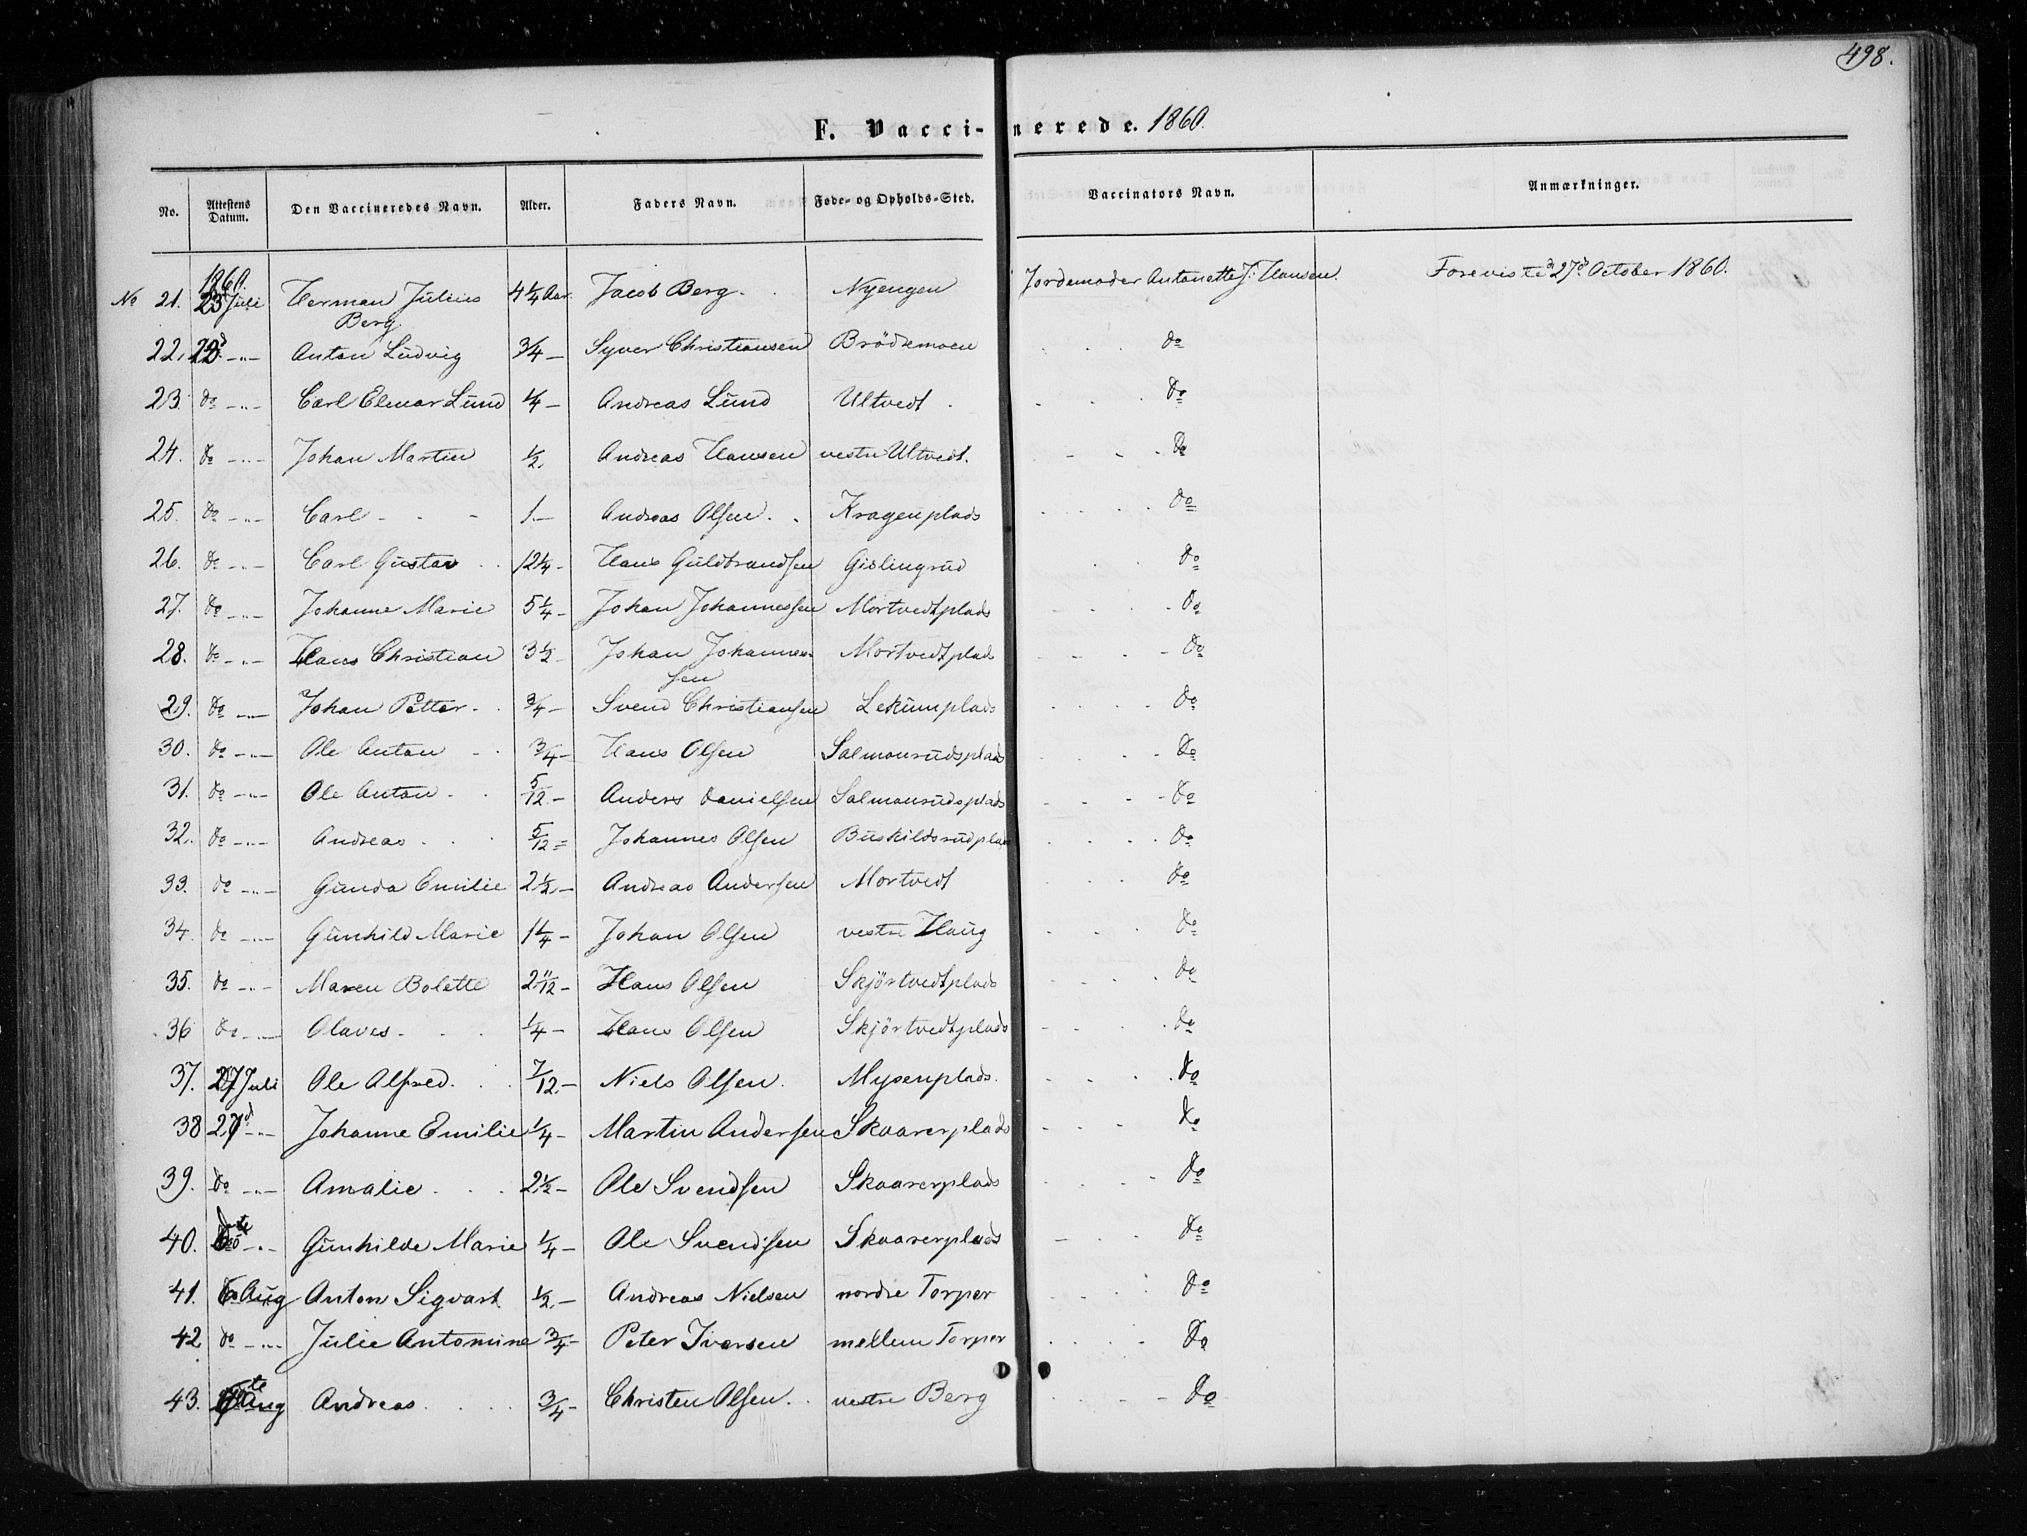 498.
F. Vaccinerede. 1860.
No. Attestens Datum. Den Vaccineredes Navn. Alder. Faders Navn. Føde- og Opholds-Sted. Vaccinators Navn. Anmærkninger.
1860.
No 21. 23 Juli Herman Julius 4 1/4 Aar. Jacob Berg. Nyengen Jordemoder Antonette J: Hansen. Forevist d. 27d October 1860.
Berg
22. -"- Anton Ludvig 3/4 - Syver Christiansen Brödremoen do
23. do -"- Carl Elmar Lund 1/4 - Andreas Lund Ultvedt. do
24. do -"- Johan Martin 1/2. Andreas Hansen vestre Ultvedt. do
25. do -"- Carl - - - 1.- Andreas Olsen. . Kragenplads do
26. do -"- Carl Gustav . . 12 1/4 - Hans Guldbrandsen Gislingrud do
27. do -"- Johanne Marie 5 1/4 - Johan Johannessen Mortvedtplads do
28. do -"- Hans Christian 3 1/2 - Johan Johannes- Mortvedtplads do
sen
29. do -"- Johan Petter - . 3/4 - Svend Christiansen Lekumplads do
30. do -"- Ole Anton - . 3/4 - Hans Olsen Salmonrudsplads do
31. do -"- Ole Anton - . 5/12.- Anders Danielsen Salmonrudsplads do
32. do -"- Andreas . . 5/12 = Johannes Olsen Buskildsrudplads do
33. do -"- Gunda Emilie 2 1/2.- Andreas Andersen Mortvedt do
34. do -"- Gunhild Marie 1 1/4 - Johan Olsen vestre Haug do
35. do -"- Maren Bolette 2 11/12 - Hans Olsen Skjörtvedtplads do
36 do -"- Olaves - . . 1/4 - Hans Olsen Skjörtvedtplads do
37. 27 Juli Ole Alfred. . . 7/12.- Niels Olsen. Mysenplads. do
38 27d -"- Johanne Emilie 1/4 - Martin Andersen Skaarerplads do
39. do -"- Amalie . . . 2 1/2 - Ole Svendsen Skaarerplads do
40. -"- Gunhilde Marie 1/4 - Ole Svendsen Skaarerplads do
41. Aug Anton Sigvart 1/2.- Andreas Nielsen nordre Torper do
42 do -"- Julie Antomine 3/4 - Peter Iversen mellem Torper do
43. Aug Andreas . . . . 3/4 - Christen Olsen. . vestre Berg do